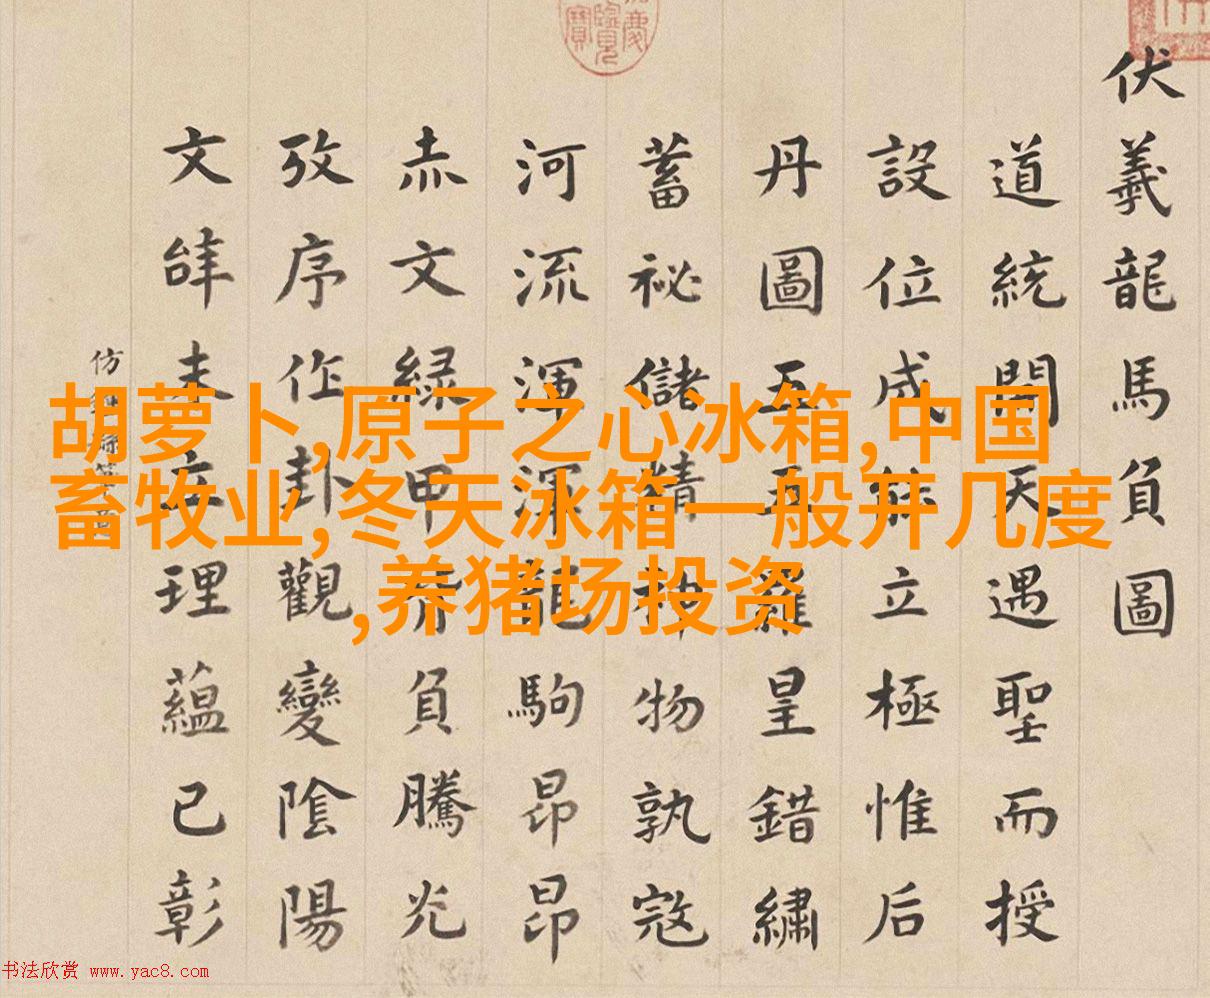 伏羲龍馬負圖
道統開天遇聖而授
設位成能立極惟后
丹圖五羅皇錯繡
蓄祕儲精神物孰寇
河流渾渾龍駒昂昂
赤文緑甲負騰光
攷序作卦觀變陰陽
文未立理蘊已彰
仿
胡萝卜,原子之心冰箱,中国
畜牧业,冬天冰箱一般开几度
,养猪场投资
书法欣赏 www.yac8.com